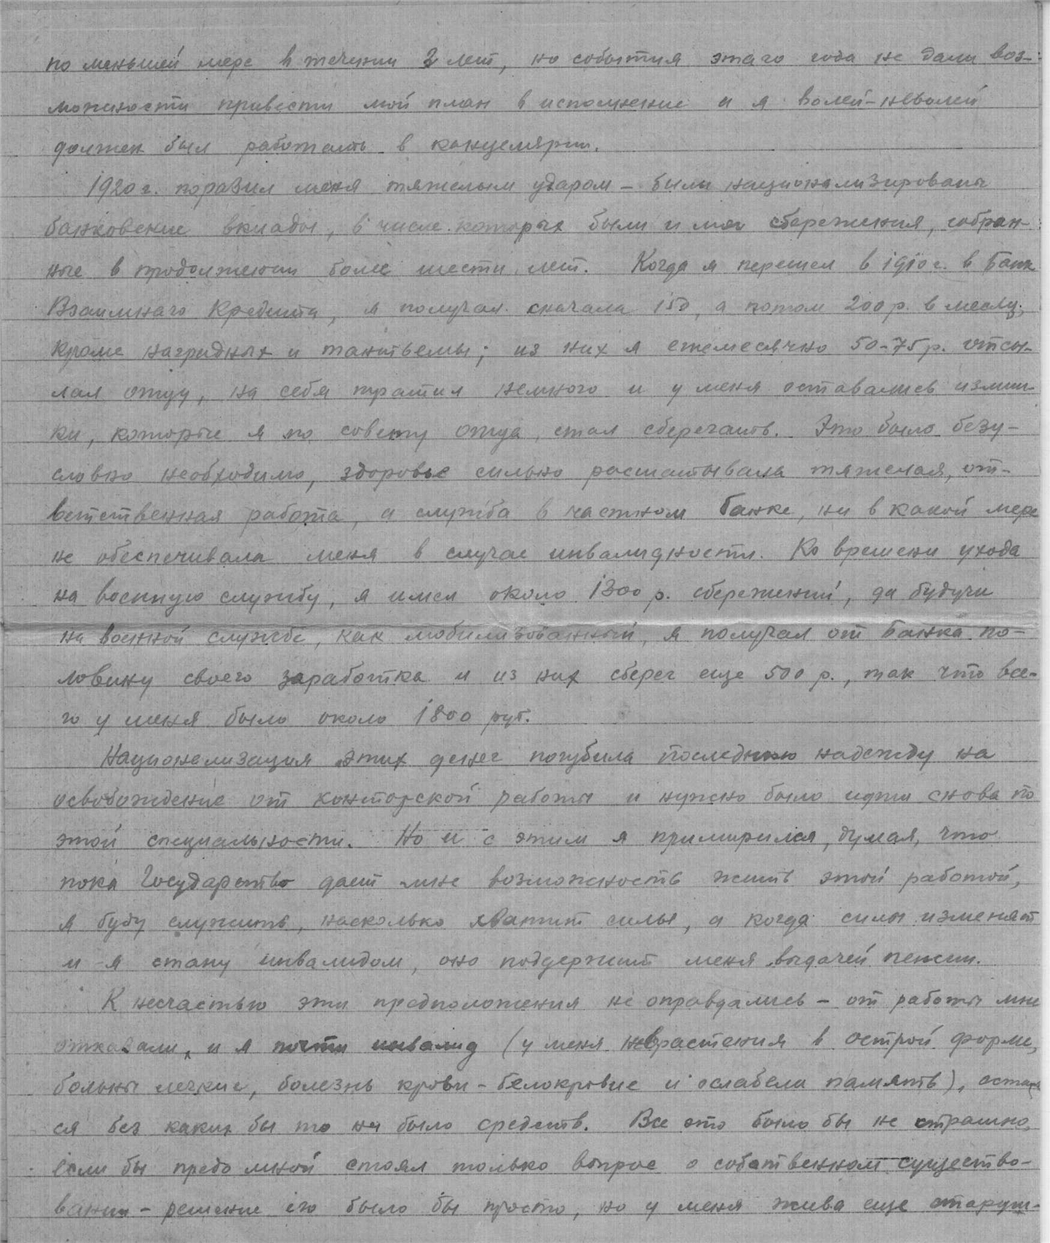 по меньшей мере в течении 2 лет, но события этого года не дали воз-
можности привести мой план в исполнение и я волей-неволей
должен был работать в канцелярии.
1920 г. поразил меня тяжелым ударом – были национализированы
банковские вклады, в числе которых были и мои сбережения, собран-
ные в продолжении более шести лет. Когда я перешел в 1910 г. в Банк
Взаимного Кредита, я получал сначала 150, а потом 200 р. в месяц,
кроме наградных и тантьемы; из них я ежемесячно 50-75 р. отсы-
лал отцу, на себя тратил немного и у меня оставались излиш-
ки, которые я по совету отца, стал сберегать. Это было безу-
словно необходимо, здоровье сильно расшатывала тяжелая, от-
ветственная работа, а служба в частном Банке, ни в какой мере
не обеспечивала меня в случае инвалидности. Ко времени ухода
на военную службу, я имел около 1300 р. сбережений, да будучи
на военной службе, как мобилизованный, я получал от Банка по-
ловину своего заработка и из них сберег еще 500 р., так что все-
го у меня было около 1800 руб.
Национализация этих денег погубила последнюю надежду на
освобождение от конторской работы и нужно было идти снова по
этой специальности. Но и с этим я примирился, думая, что
пока Государство дает мне возможность жить этой работой,
я буду служить, насколько хватит силы, а когда силы изменят
и я стану инвалидом, оно поддержит меня выдачей пенсии.
К несчастью эти предположения не оправдались – от работы мне
отказали, и я почти инвалид (у меня неврастения в острой форме,
больны легкие, болезнь крови – белокровие и ослабела память), остал-
ся без каких бы то ни было средств. Все это было бы не страшно,
если бы предо мной стоял только вопрос о собственном существо-
вании – решение его было бы просто, но у меня жива еще старуш-